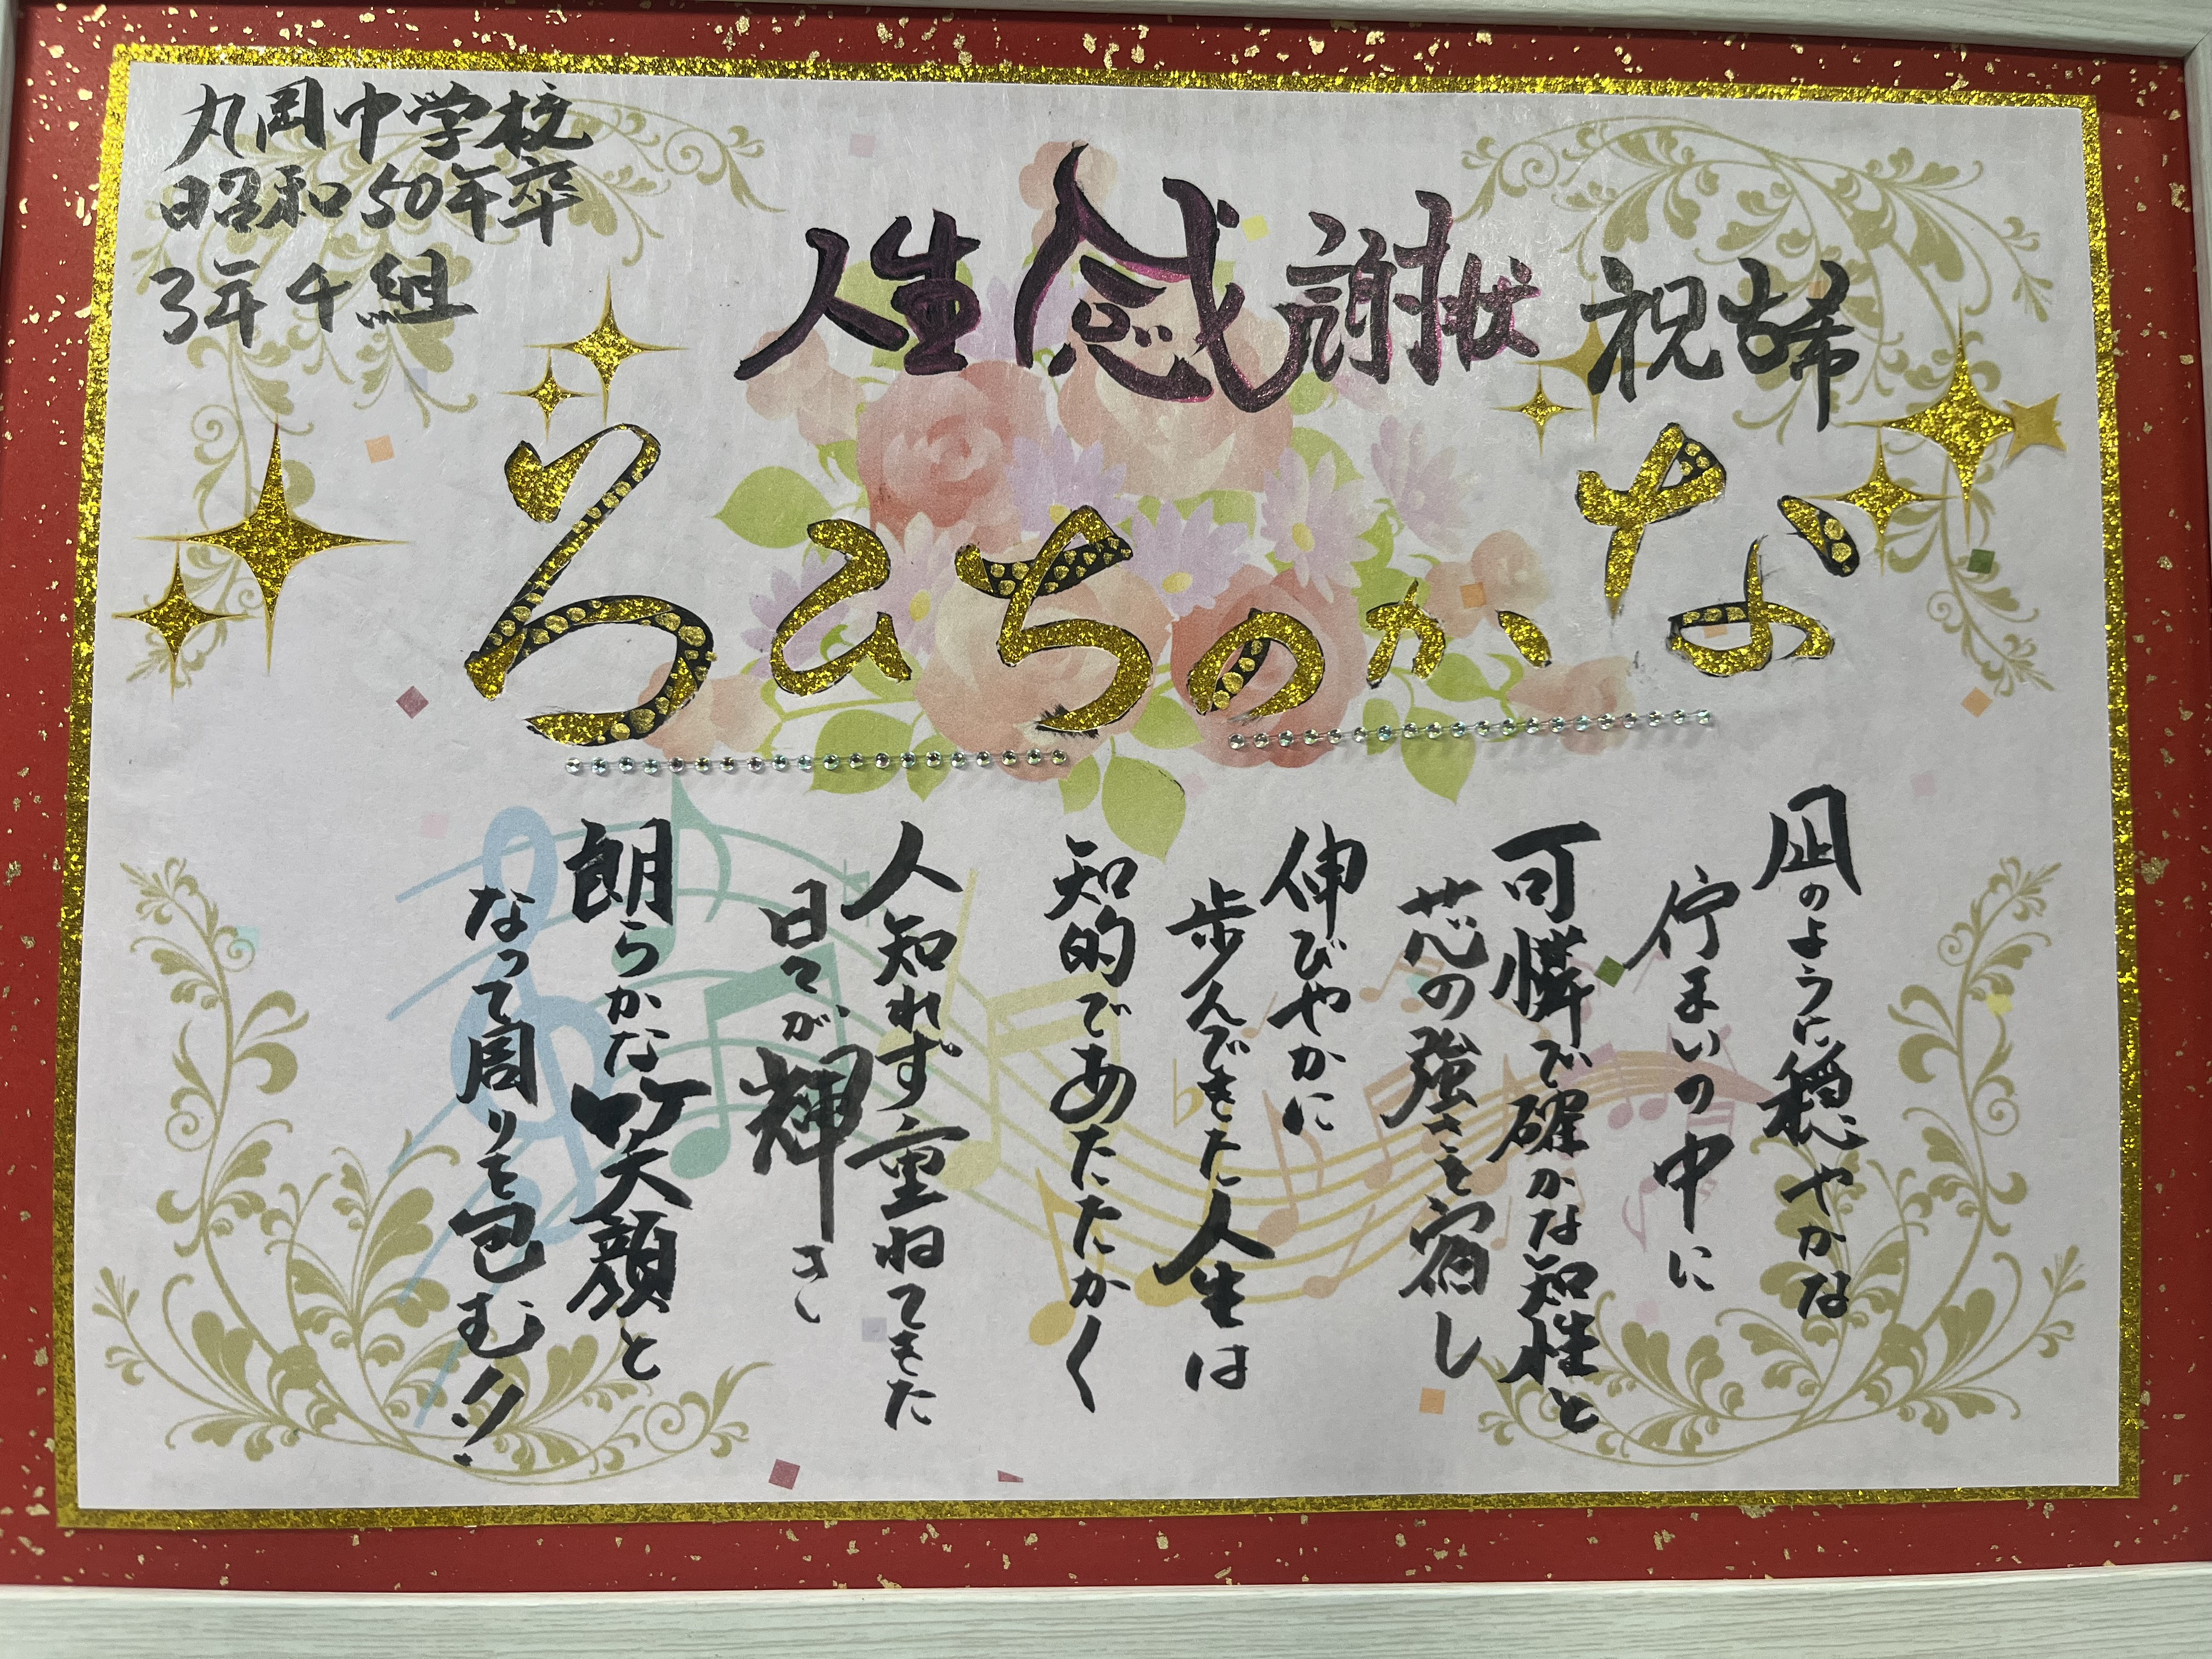 丸岡中学校
昭和50年卒
3年4組
人生感謝状 祝
なかのちひろ
凪のように穏やかな
佇まいの中に
可憐で確かな知性と
芯の強さを宿し
伸びやかに
歩んできた人生は
知的であたたかく
人知れず重ねてきた
日々が輝き
朗らかな笑顔と
なって周りを包む!!